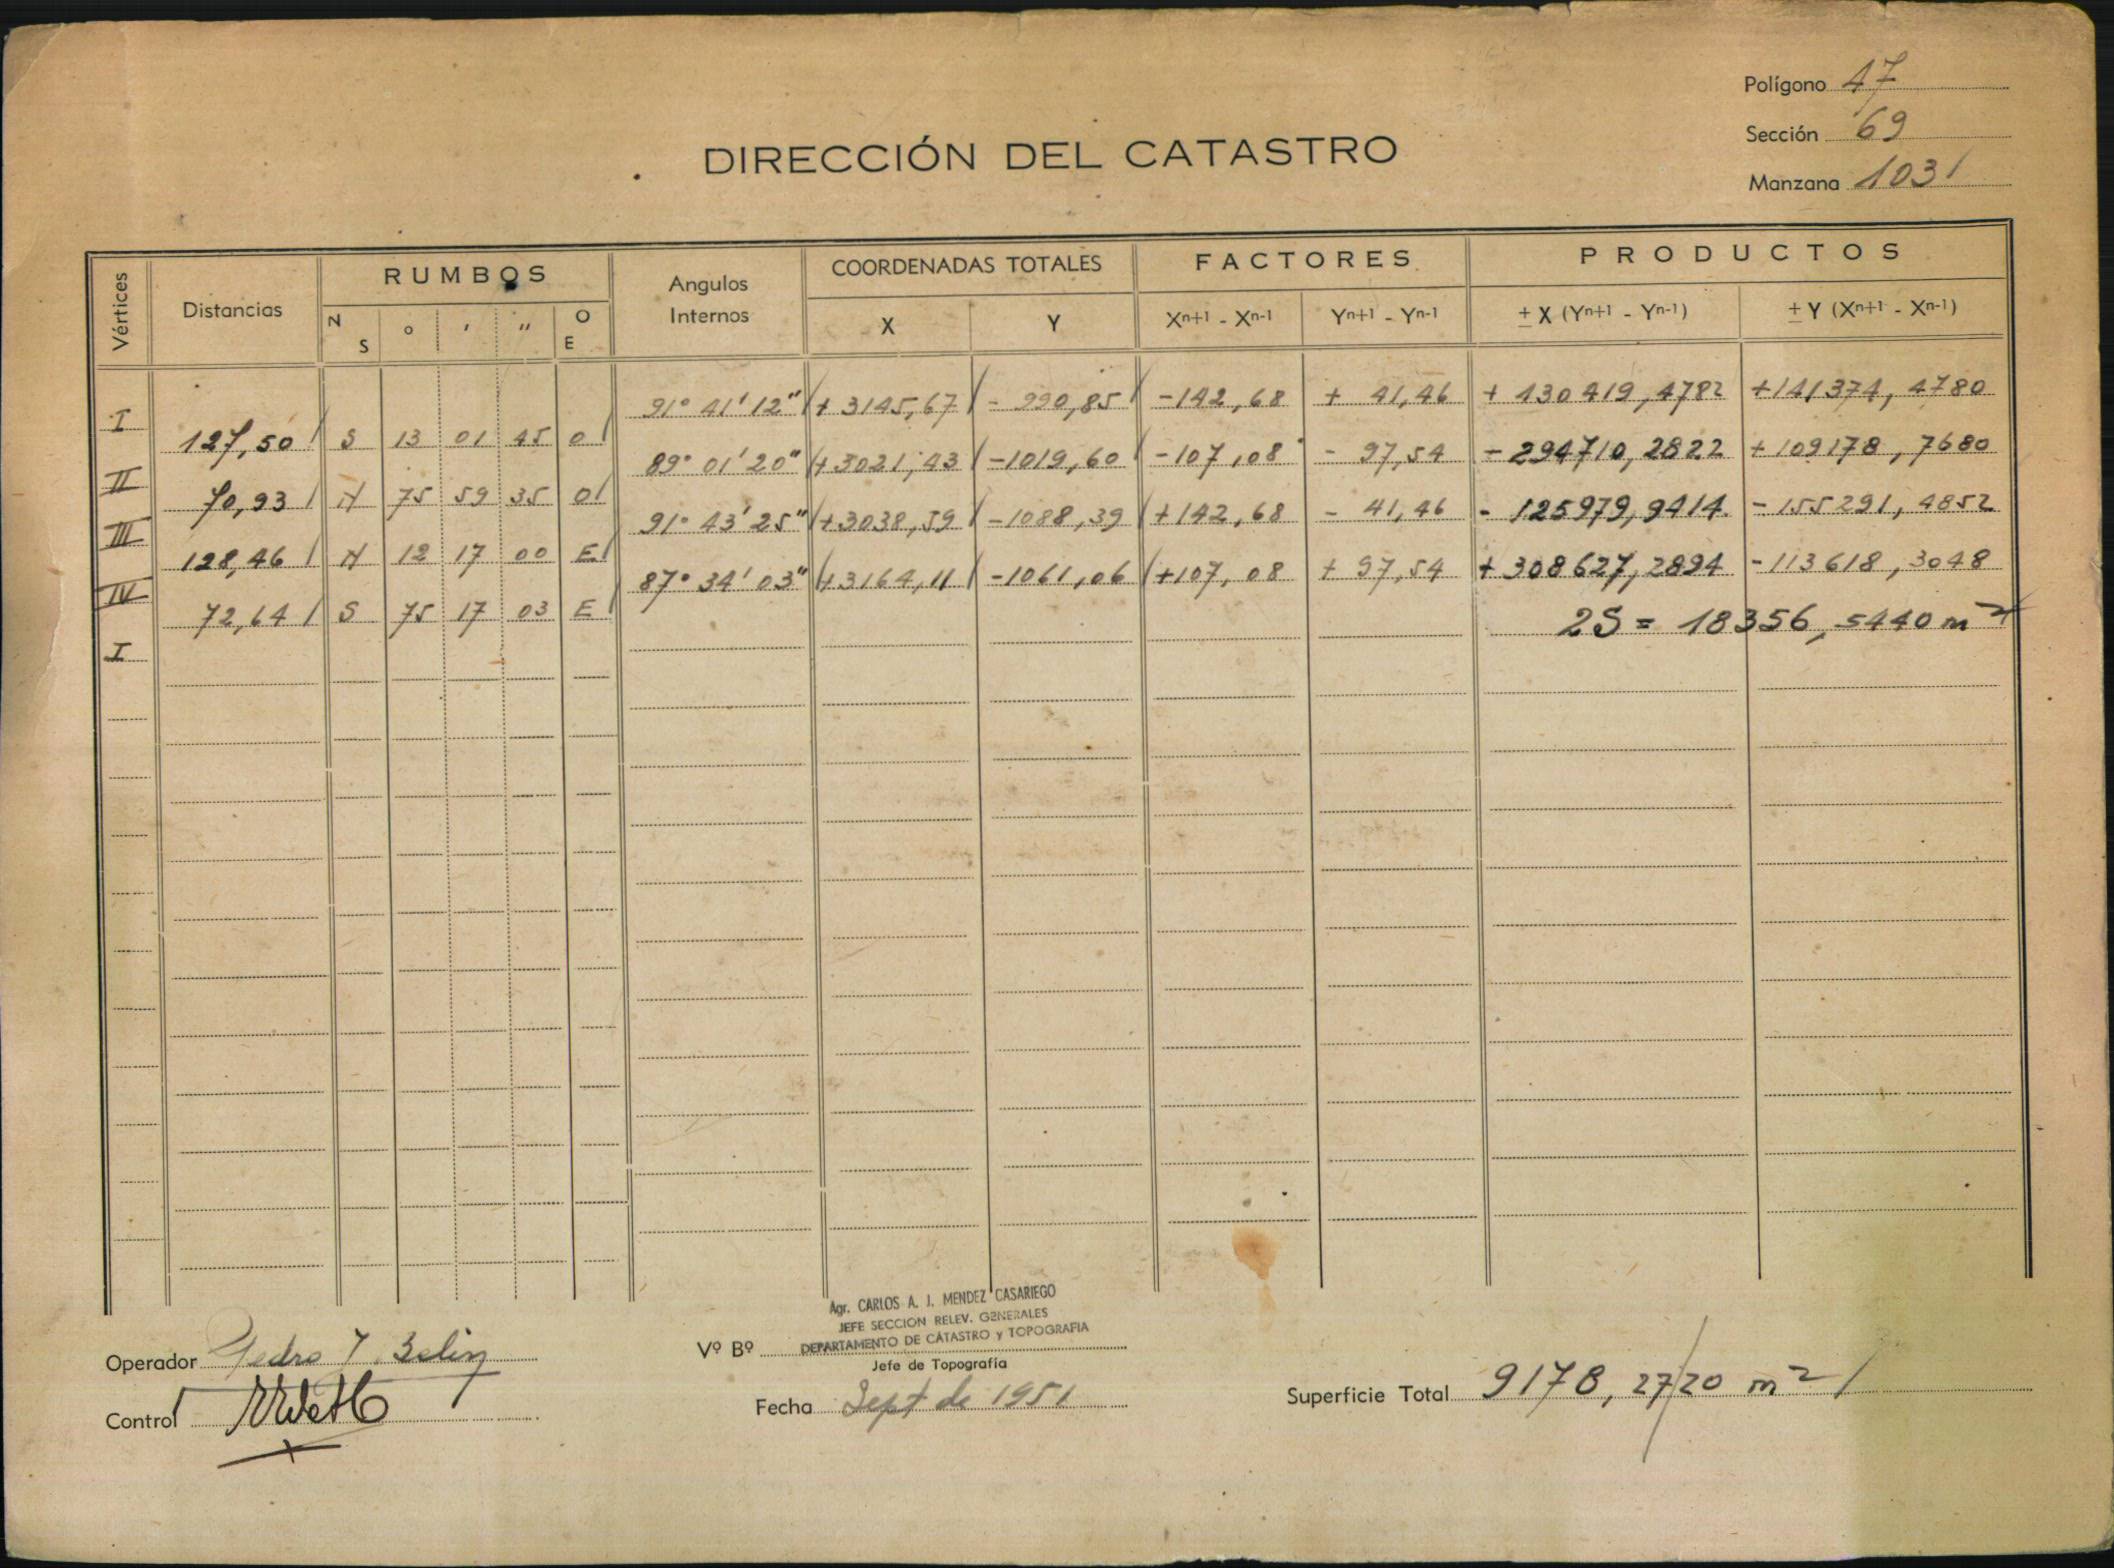 Polígono 47
Sección 69
Manzana 1031
DIRECCIÓN DEL CATASTRO
Vértices Distancias RUMBOS Angulos Internos COORDENADAS TOTALES FACTORES PRODUCTOS
N S ° ' " O E X Y Xn+1 - Xn-1 Yn+1 - Yn-1 ± X (Yn+1 - Yn-1) ± Y (Xn+1 - Xn-1)
I 91° 41' 12" + 3145,67 - 990,85 -142,68 + 41,46 + 130419,4782 +141374,4780
127,50 S 13 01 45 O
II 89° 01' 20" +3021,43 -1019,60 -107,08 - 97,54 -294710,2822 +109178,7680
70,93 N 75 59 35 O
III 91° 43' 25" +3038,59 -1088,39 +142,68 - 41,46 - 125979,9414 -155291,4852
128,46 N 12 17 00 E
IV 87° 34' 03" +3164,11 -1061,06 +107,08 + 97,54 +308627,2894 -113618,3048
72,64 S 75 17 03 E
I
2S = 18356,5440 m²
Operador Pedro J. Belin
Control
Vº Bº
Agr. CARLOS A. J. MENDEZ CASARIEGO
JEFE SECCION RELEV. GENERALES
DEPARTAMENTO DE CATASTRO y TOPOGRAFIA
Jefe de Topografía
Fecha Sept de 1951
Superficie Total 9178,2720 m²